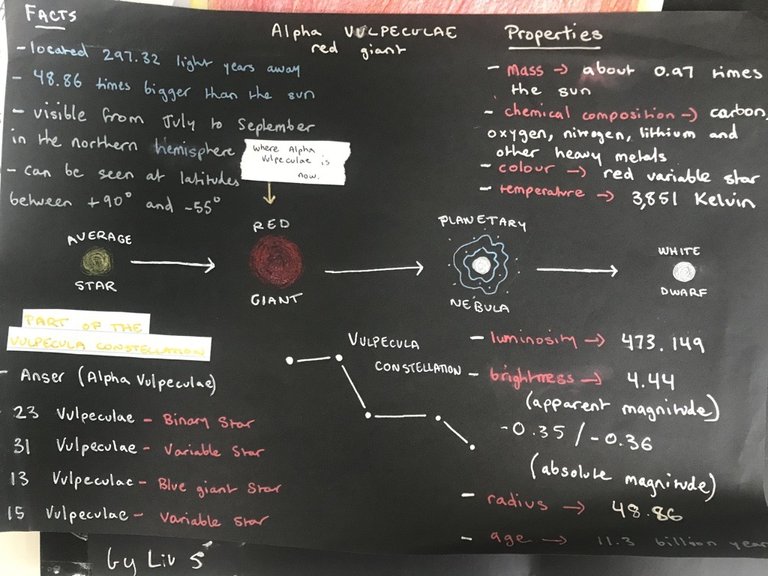 FACTS
- located 297.32 light years away
- 48.86 times bigger than the sun
- visible from July to September
in the northern hemisphere
- can be seen at latitudes
between +90° and -55°
Alpha VULPECULAE
red giant
where Alpha
Vulpeculae is
now.
Properties
- Mass → about 0.97 times
the sun
- chemical composition → carbon,
oxygen, nitrogen, lithium and
other heavy metals
- colour → red variable star
- temperature → 3,851 Kelvin
AVERAGE
STAR
RED
GIANT
PLANETARY
NEBULA
WHITE
DWARF
PART OF THE
VULPECULA CONSTELLATION
- Anser (Alpha Vulpeculae)
- 23 Vulpeculae - Binary Star
31 Vulpeculae - Variable Star
13 Vulpeculae - Blue giant Star
15 Vulpeculae - Variable Star
VULPECULA
CONSTELLATION
- luminosity → 473.149
- brightness → 4.44
(apparent magnitude)
-0.35 / -0.36
(absolute magnitude)
- radius → 48.86
- age → 11.3 billion year
by Liv S